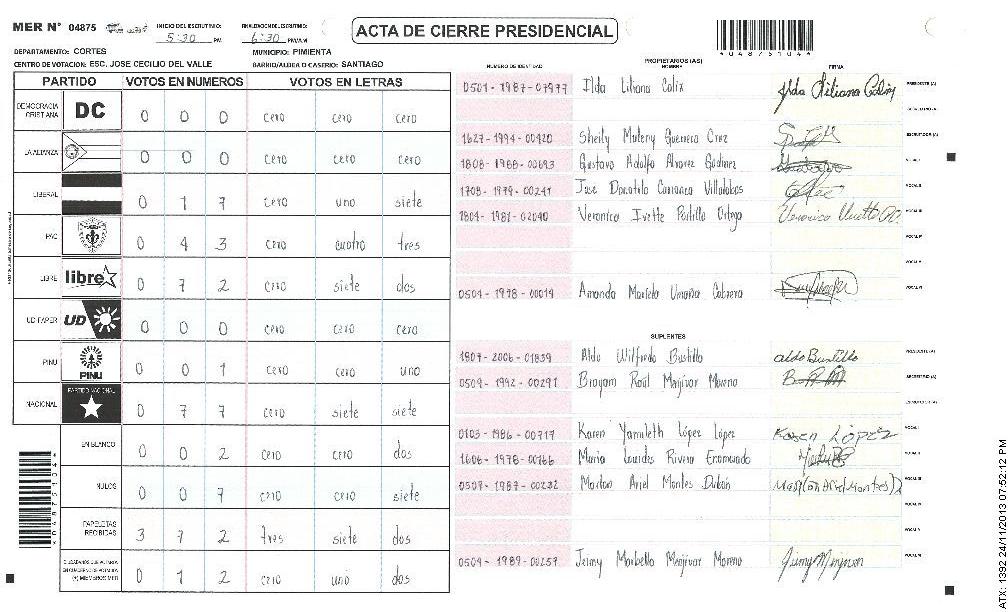 MER N° 04875
INICIO DEL ESCRUTINIO: 5:30 PM
FINALIZACION DEL ESCRUTINIO: 6:30 PM/AM
ACTA DE CIERRE PRESIDENCIAL
DEPARTAMENTO: CORTES
MUNICIPIO: PIMIENTA
CENTRO DE VOTACION: ESC. JOSE CECILIO DEL VALLE
BARRIO/ALDEA O CASERIO: SANTIAGO
PARTIDO VOTOS EN NUMEROS VOTOS EN LETRAS
DEMOCRACIA CRISTIANA DC 0 0 0 cero cero cero
LA ALIANZA 0 0 0 cero cero cero
LIBERAL 0 1 7 cero uno siete
PAC 0 4 3 cero cuatro tres
LIBRE libre 0 7 2 cero siete dos
UD-FAPER UD 0 0 0 cero cero cero
PINU PINU 0 0 1 cero cero uno
NACIONAL PARTIDO NACIONAL 0 7 7 cero siete siete
EN BLANCO 0 0 2 cero cero dos
NULOS 0 0 7 cero cero siete
PAPELETAS RECIBIDAS 3 7 2 tres siete dos
(+) MIEMBROS MER 0 1 2 cero uno dos
PROPIETARIOS (AS)
NUMERO DE IDENTIDAD NOMBRE FIRMA
0501-1987-07977 Ilda Liliana Calix Ilda Liliana Calix PRESIDENTE (A)
SECRETARIO (A)
1627-1994-00420 Sheily Guerrero Cruz ESCRUTADOR (A)
1808-1968-00693 Gustavo Adolfo Alvarez VOCAL I
1708-1979-00241 Jose Donatilo Carranca Villalobos VOCAL II
1804-1981-02040 Veronica Ivette Portillo Ortega VOCAL III
VOCAL IV
VOCAL V
0504-1978-00019 Amanda Umaña Cabrera VOCAL VI
SUPLENTES
1807-2006-01839 Aldo Wilfredo Bustillo aldo Bustillo PRESIDENTE (A)
0509-1992-00291 Brayam Raúl Menjivar Moreno SECRETARIO (A)
ESCRUTADOR (A)
0103-1986-00717 Karen Yamileth López López Karen López VOCAL I
1606-1978-00166 Maria Lourdes Rivera Enamorado VOCAL II
0507-1987-00232 Marlon Ariel Montes VOCAL III
VOCAL IV
VOCAL V
0509-1989-00257 Jeimy Maribella Menjivar Moreno VOCAL VI
ATX: 1392 24/11/2013 07:52:12 PM